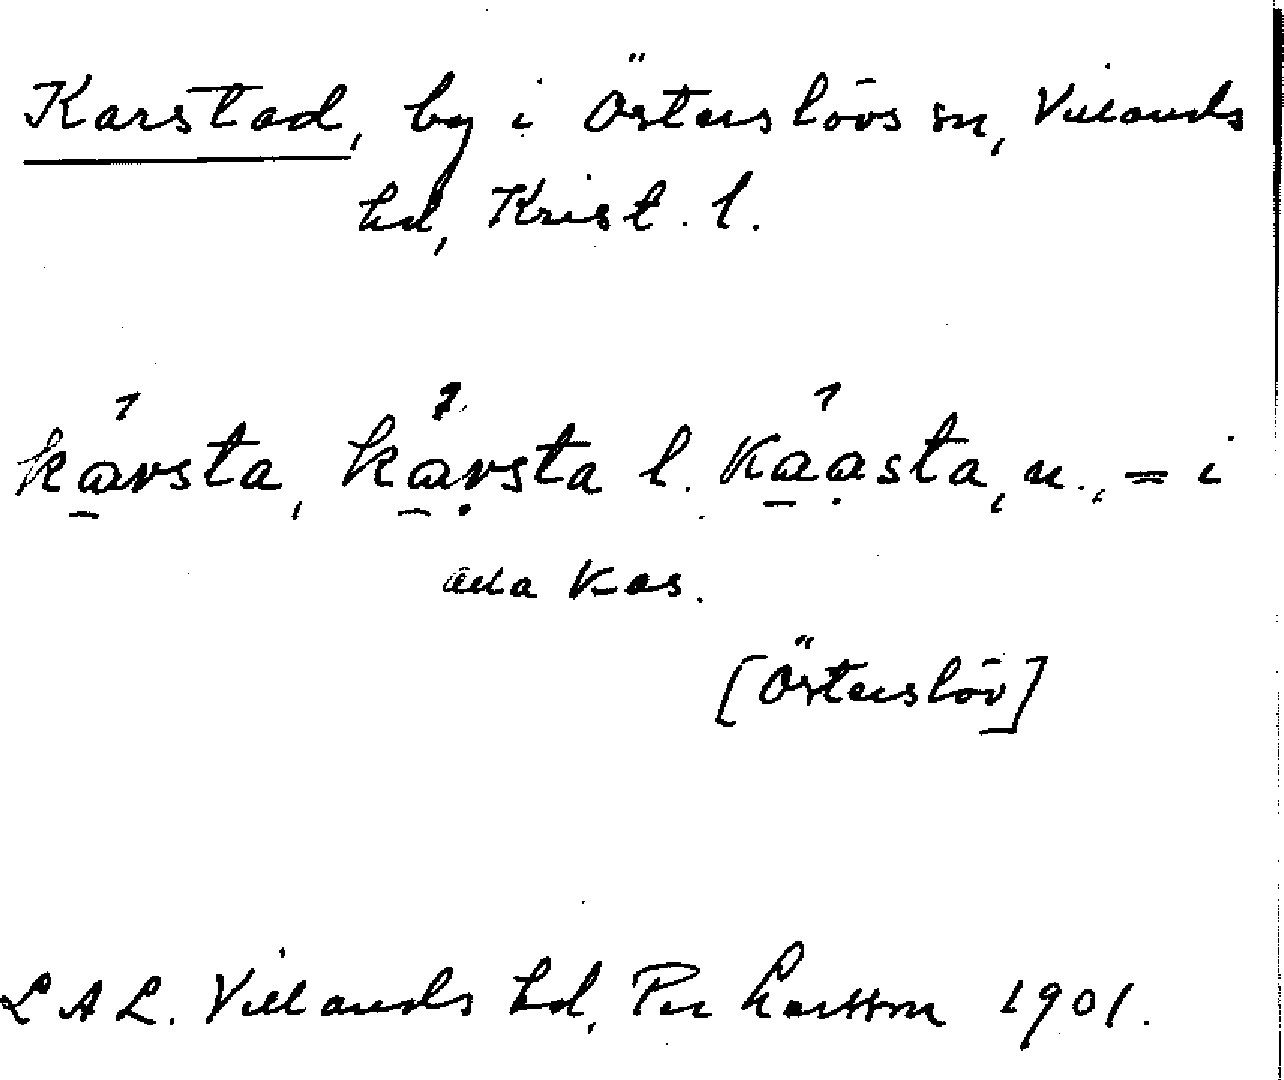 Karstad, by i Österslövs sn, Villands
hd, Krist. l.
karsta, karsta l. kaasta, n., = i
alla kas.
[Österslöv]
LAL. Villands hd, Per Larsson 1901.